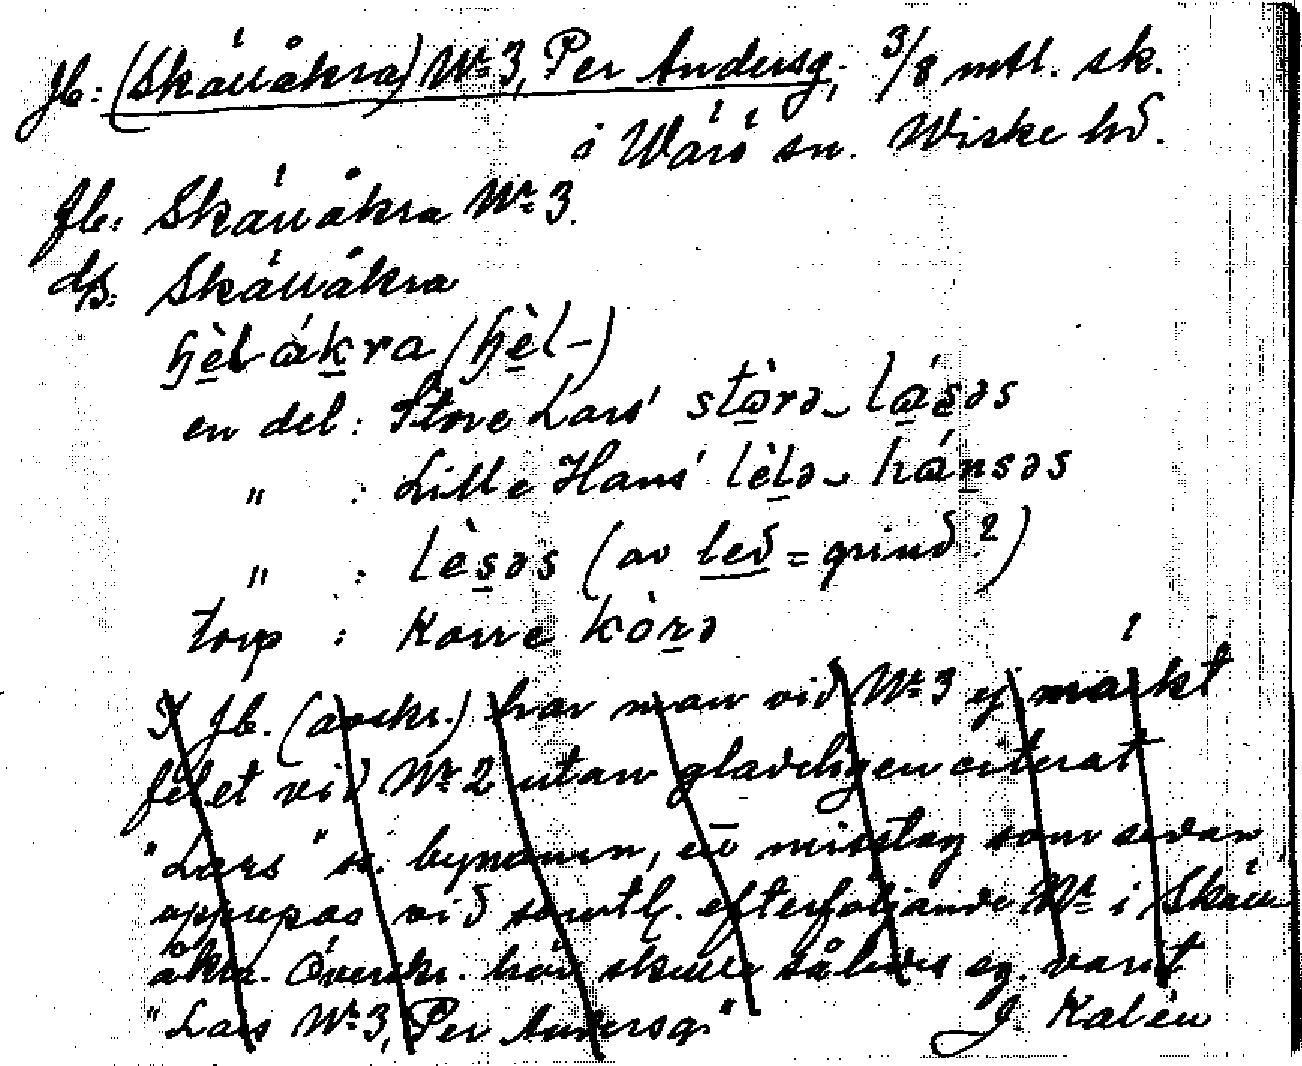 Jb: (Skällåkra) Nr 3, Per Andersg. 3/8 mtl. sk.
i Värö sn. Wiske hd.
Jb: Skällåkra Nr 3.
ds: Skällåkra
en del: Store Lars' stòrə lásəs
" : Lille Hans' lèlə hánsəs
" : lèsəs (av led = grind?)
torp : Korre kòrə
I Jb. (avskr.) har man vid Nr 3 ej märkt
felet vid Nr 2 utan gladeligen citerat
"Lars" s. bynamn, ett misstag som sedan
upprepas vid samtl. efterföljande Nr i Skäll-
åkra. Överskr. här skulle således eg. varit
"Lars Nr 3, Per Andersg."
J Kalén